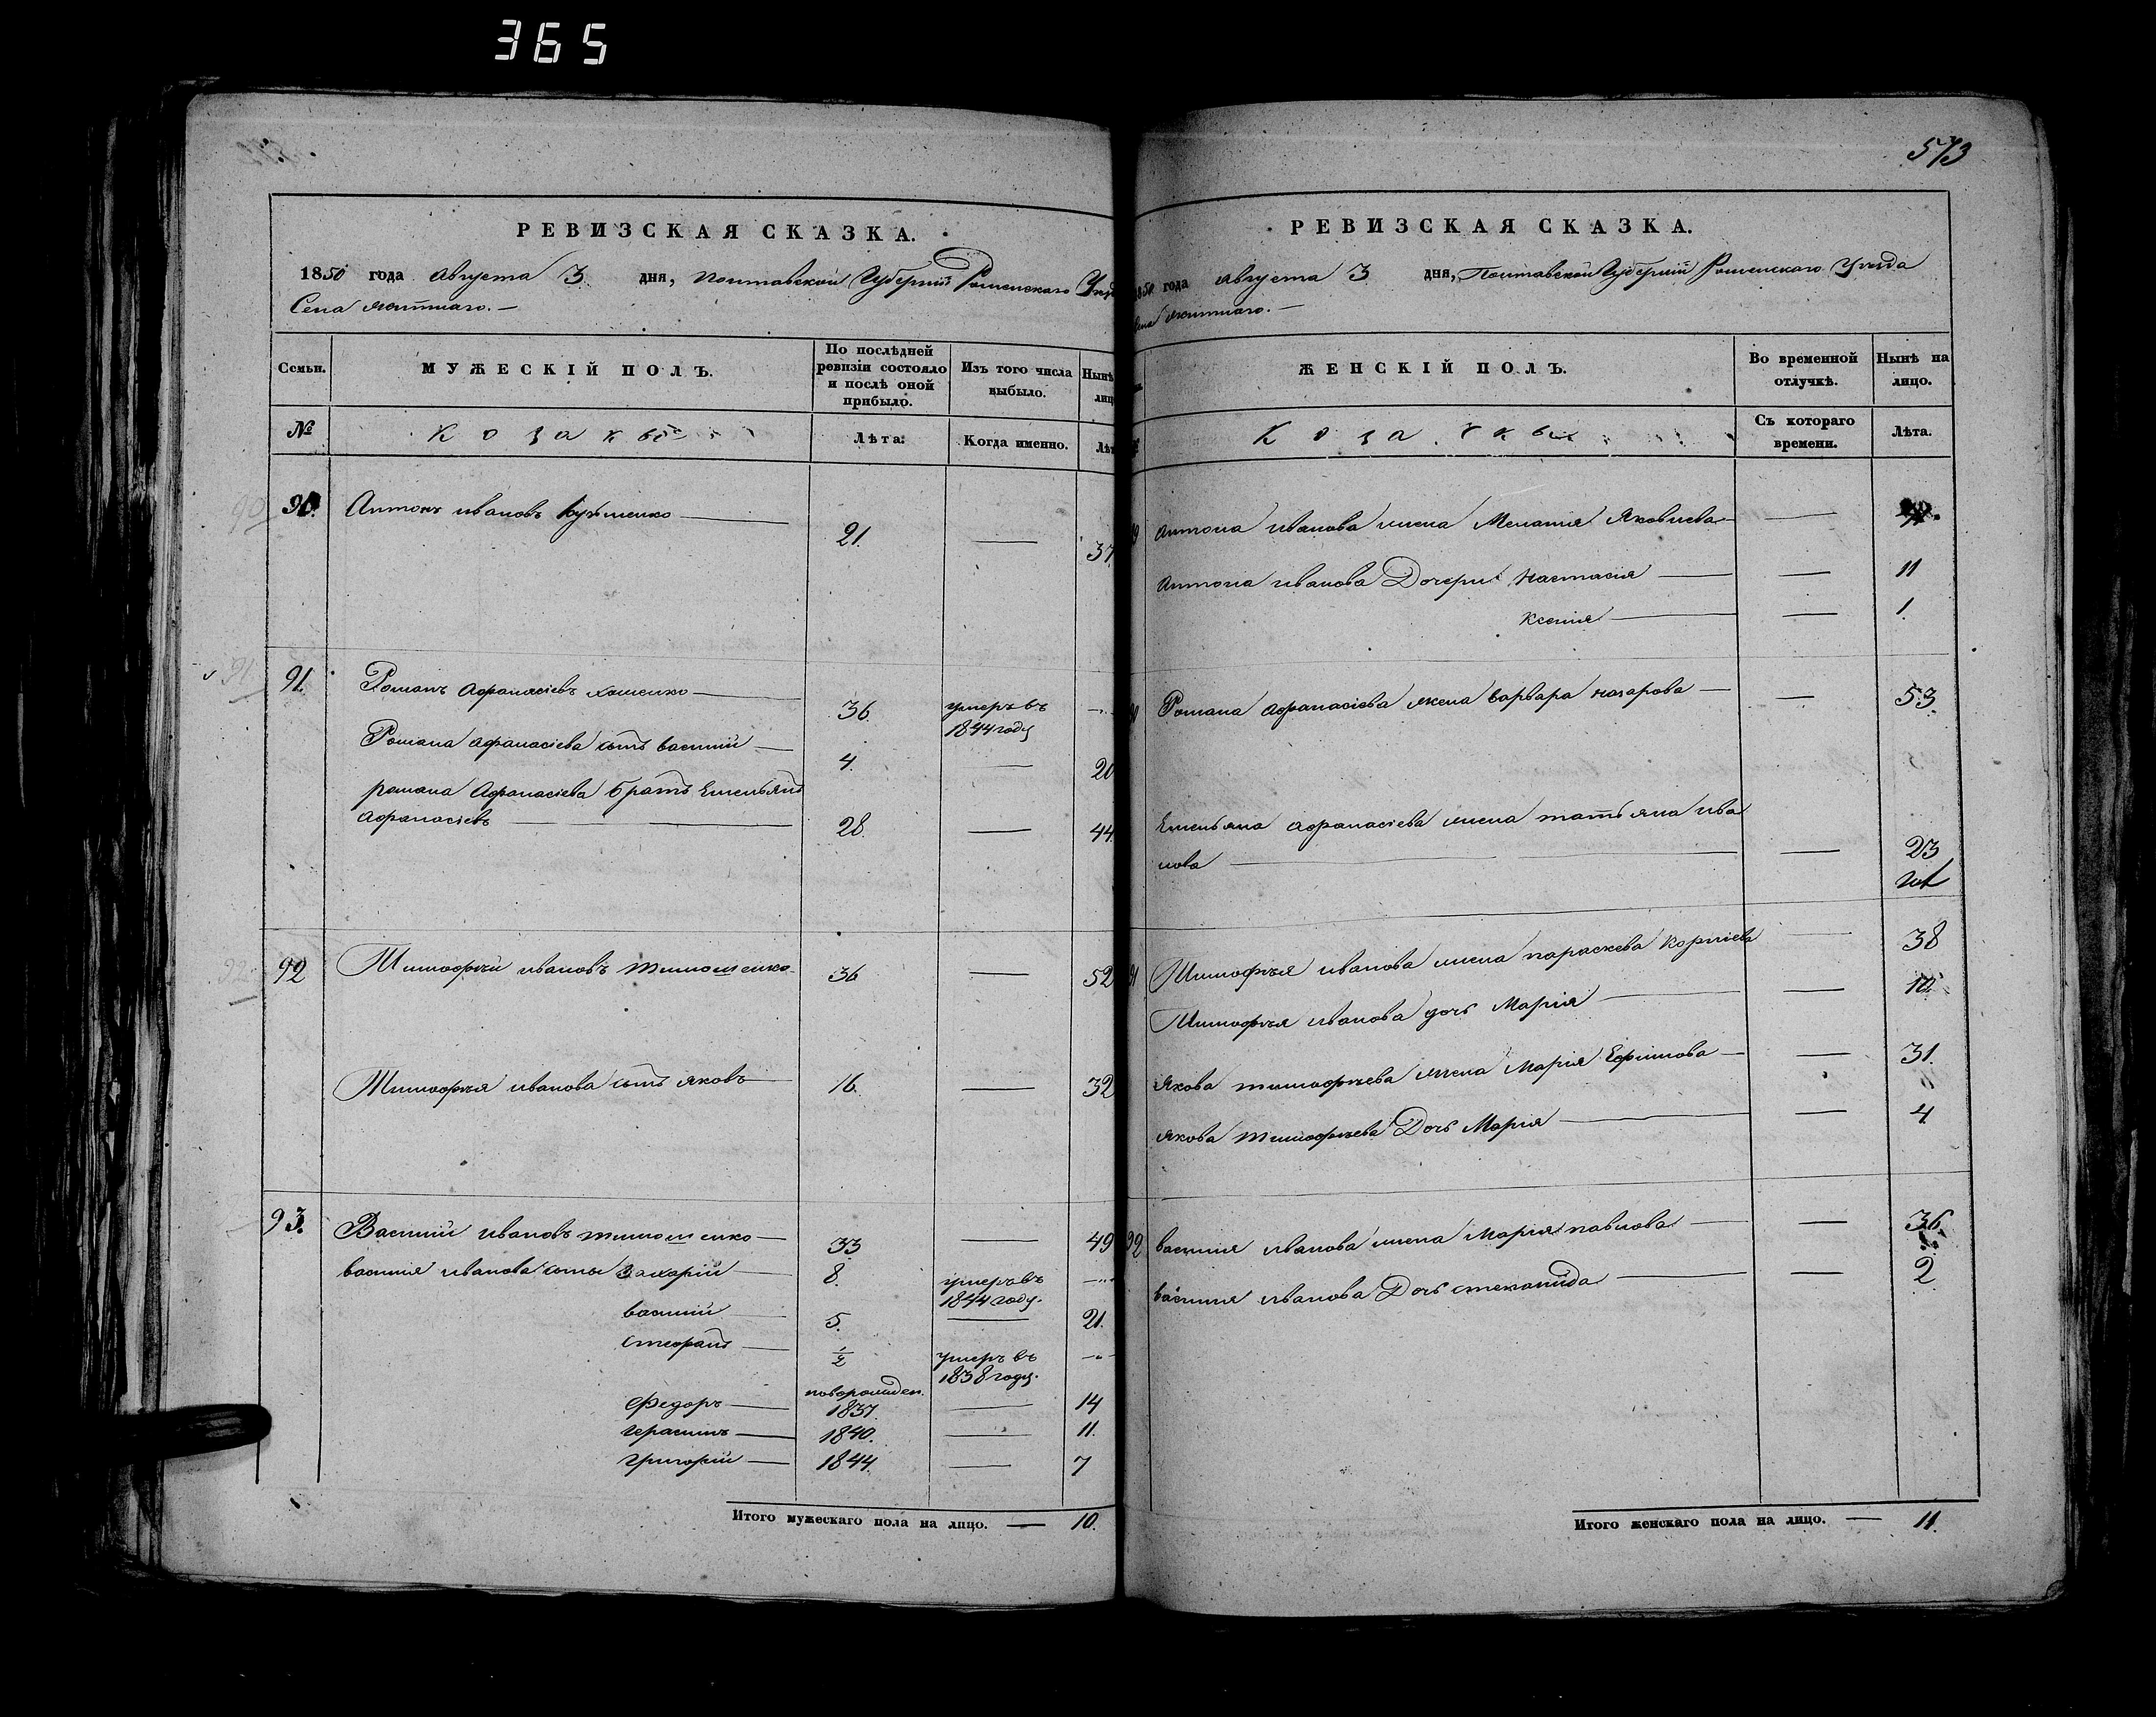 365
573
РЕВИЗСКАЯ СКАЗКА.
1850 года Августа 3 дня, Полтавской Губерніи Роменскаго
Села
Семьи.
МУЖЕСКІЙ ПОЛЪ.
По послѣдней ревизіи состояло и послѣ оной прибыло.
Изъ того числа выбыло.
Нынѣ
№
Козаковъ
Лѣта:
Когда именно.
90. Антонъ Ивановъ — 21. — 37.
91. Романъ Афанасіевъ — 36. умеръ въ 1844 году
Романа Афанасіева сынъ Василий — 4. — 20
Романа Афанасіева братъ Емельянъ
Афанасіевъ — 28. — 44.
92 Тимофѣй Ивановъ Тимошенко 36 — 52
Тимофѣя Иванова сынъ Яковъ 16. — 32
93. Василий Ивановъ Тимошенко — 33 — 49
Василия Иванова сыны Захарій — 8. умеръ въ 1844 году.
Василий — 5. — 21.
Стефанъ — 1/2 умеръ въ 1838 году.
новорожден.
Федоръ — 1837. — 14
Герасимъ — 1840. — 11.
Григорій — 1844. — 7
Итого мужескаго пола на лицо. — 10.
РЕВИЗСКАЯ СКАЗКА.
1850 года Августа 3 дня, Полтавской Губерніи Роменскаго Уезда
ЖЕНСКІЙ ПОЛЪ.
Во временной отлучкѣ.
Нынѣ на лицо.
Съ котораго времени.
Лѣта.
Антона Иванова жена Мелания Яковлева —
Антона Иванова Дочери Настасия — — 11
Ксения — — 1.
Романа Афанасіева жена Варвара Назарова — — 53.
Емельяна Афанасіева жена Татьяна Ива
нова — — 23
Тимофѣя Иванова жена Параскева Корніева — 38
Тимофѣя Иванова дочь Марія — — 12
Якова Тимофѣева жена Марія Ефимова — — 31.
Якова Тимофѣева Дочь Мария — — 4
92 Василия Иванова жена Мария Павлова — — 36.
Василия Иванова Дочь Степанида — — 2
Итого женскаго пола на лицо. — 11.